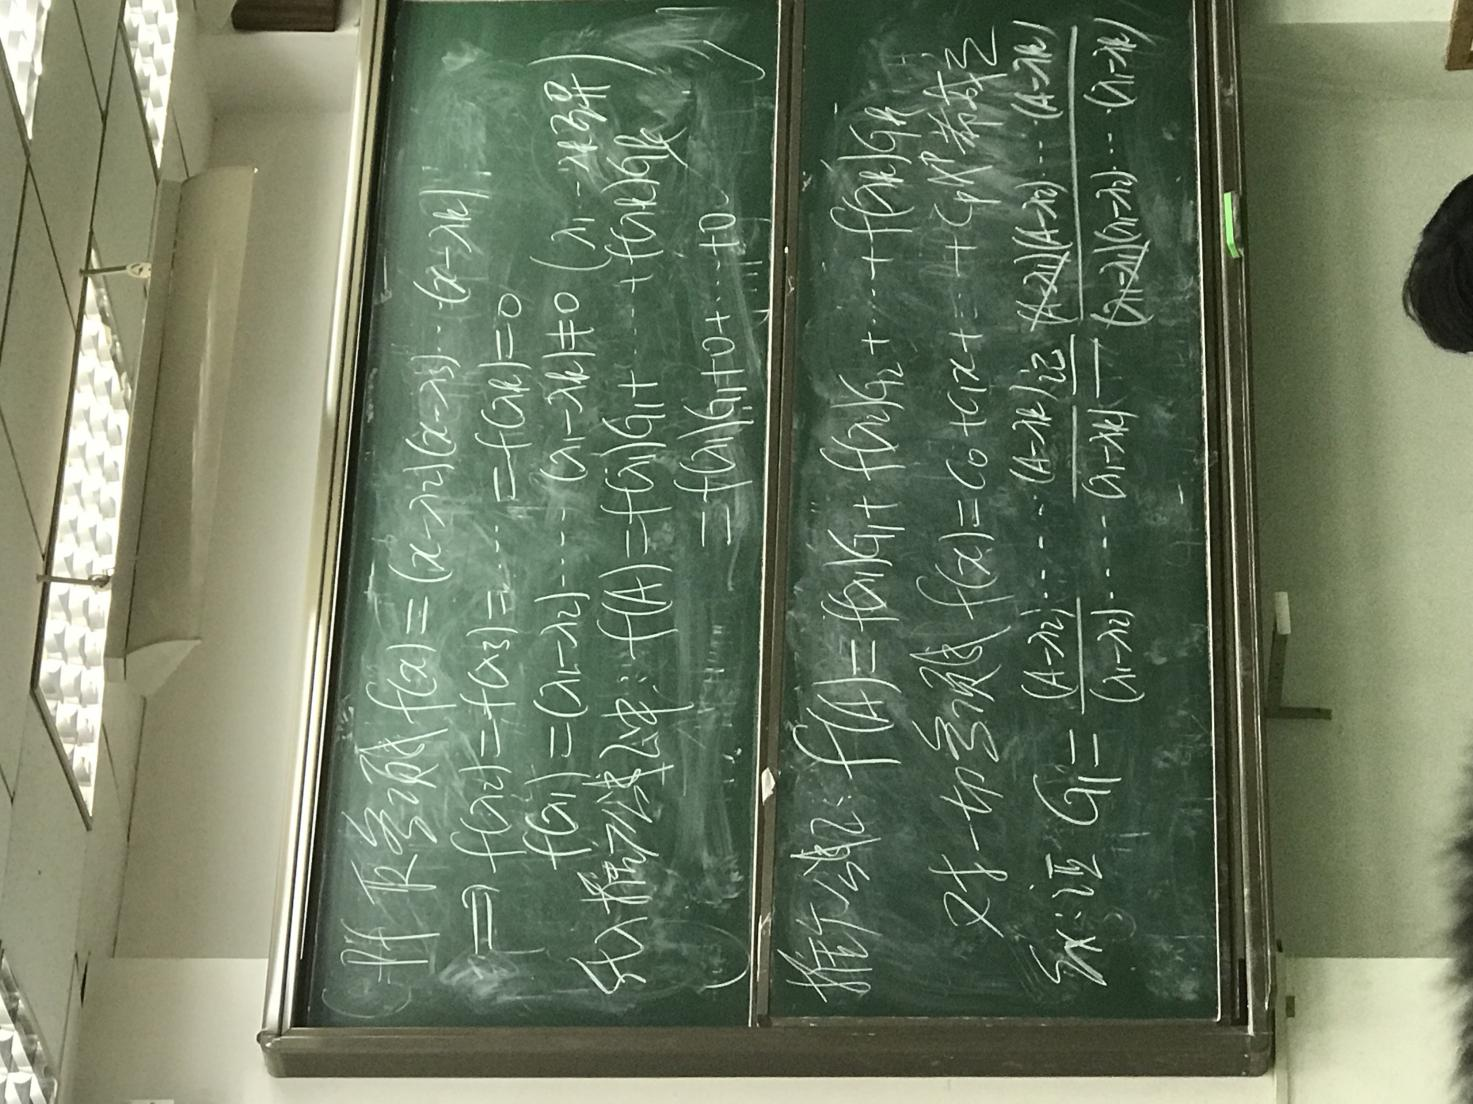 (令多项式 f(x) = (x-λ2)(x-λ3)…(x-λk)
⇒ f(λ2) = f(λ3) = …… = f(λk) = 0
f(λ1) = (λ1-λ2)……(λ1-λk) ≠ 0 (λ1…λk互异)
公式: f(A) = f(λ1)G1 + …… + f(λk)Gk
= f(λ1)G1+0+……+0
公式: f(A) = f(λ1)G1 + f(λ2)G2 + …… + f(λk)Gk
对一切多项式 f(x) = C0 + C1x + …… + CpX^p 都成立
求证 G1 = (A-λ2)……(A-λk) / (λ1-λ2)……(λ1-λk) 记 = (A-λ1)(A-λ2)……(A-λk) / (λ1-λ1)(λ1-λ2)……(λ1-λk)